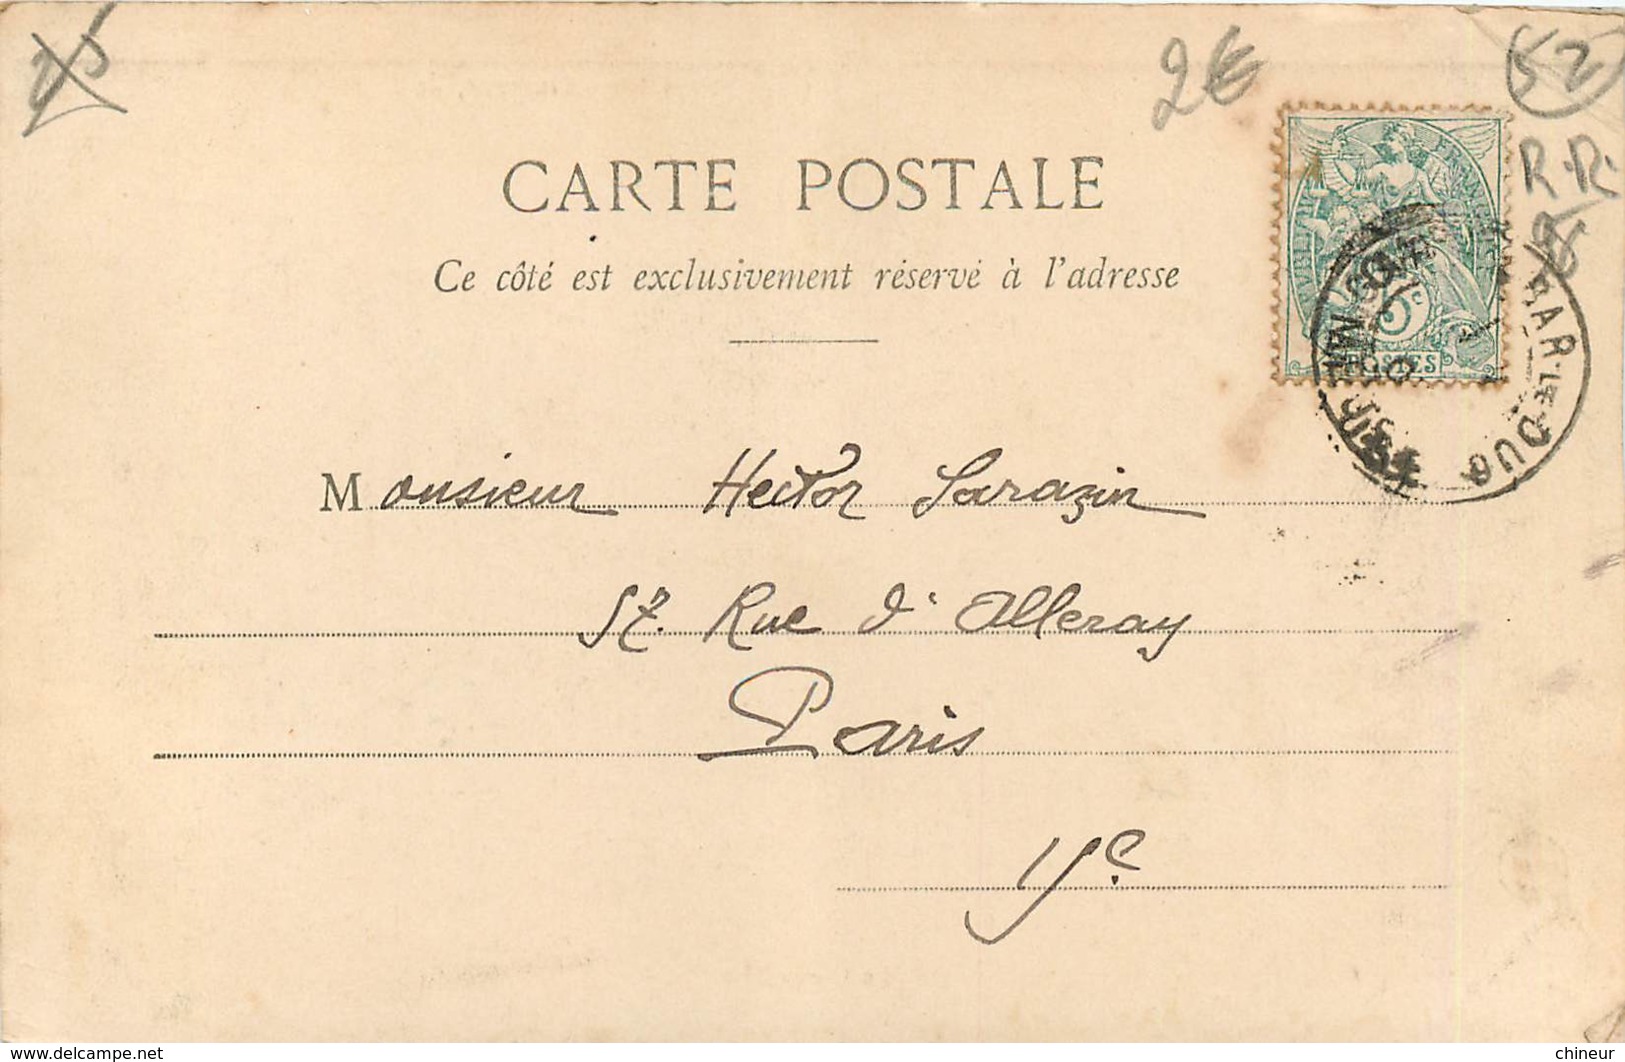 2€
52
R.R.
CARTE POSTALE
Ce côté est exclusivement réservé à l'adresse
FRANÇAISE
5c
POSTES
BAR LE DUC
Monsieur Hector Sarazin
57. Rue d'Alleray
Paris
www.delcampe.net
chineur